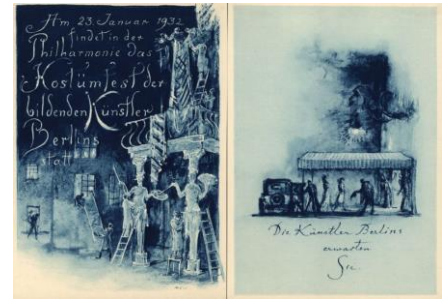 Am 23. Januar 1932
findet in der
Philharmonie das
Kostümfest der
bildenden Künstler
Berlins
statt
Die Künstler Berlins
erwarten
Sie.